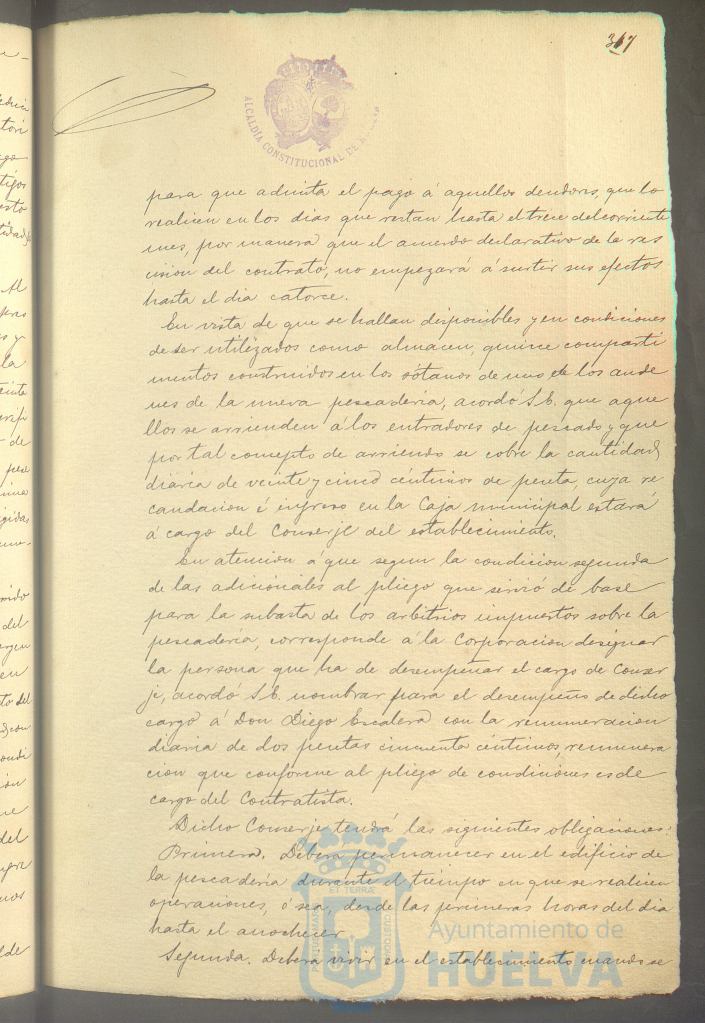 317
ALCALDÍA CONSTITUCIONAL DE
para que admita el pago á aquellos deudores, que lo
realicen en los dias que restan hasta el trece del corriente
mes, por manera que el acuerdo declarativo de la res
cision del contrato, no empezará á surtir sus efectos
hasta el dia catorce.
En vista de que se hallan disponibles y en condiciones
de ser utilizados como almacen, quince comparti
mentos construidos en los sótanos de uno de los ande
nes de la nueva pescadería, acordó S.E. que aque
llos se arrienden á los entradores de pescado y que
por tal concepto de arriendo se cobre la cantidad
diaria de veinte y cinco céntimos de peseta, cuya re
caudacion é ingreso en la Caja municipal estará
á cargo del Conserje del establecimiento.
En atencion á que segun la condicion segunda
de las adicionales al pliego que sirvió de base
para la subasta de los arbitrios impuestos sobre la
pescadería, corresponde á la Corporacion designar
la persona que ha de desempeñar el cargo de Conser
je, acordó S.E. nombrar para el desempeño de dicho
cargo á Don Diego Escalera con la remuneracion
diaria de dos pesetas cincuenta céntimos, remunera
cion que conforme al pliego de condiciones es de
cargo del Contratista.
Dicho Conserje tendrá las siguientes obligaciones:
Primera. Deberá permanecer en el edificio de
la pescadería durante el tiempo en que se realicen
operaciones, ó sea, desde las primeras horas del dia
hasta el anochecer.
Segunda. Deberá vivir en el establecimiento cuando se
Ayuntamiento de
HUELVA